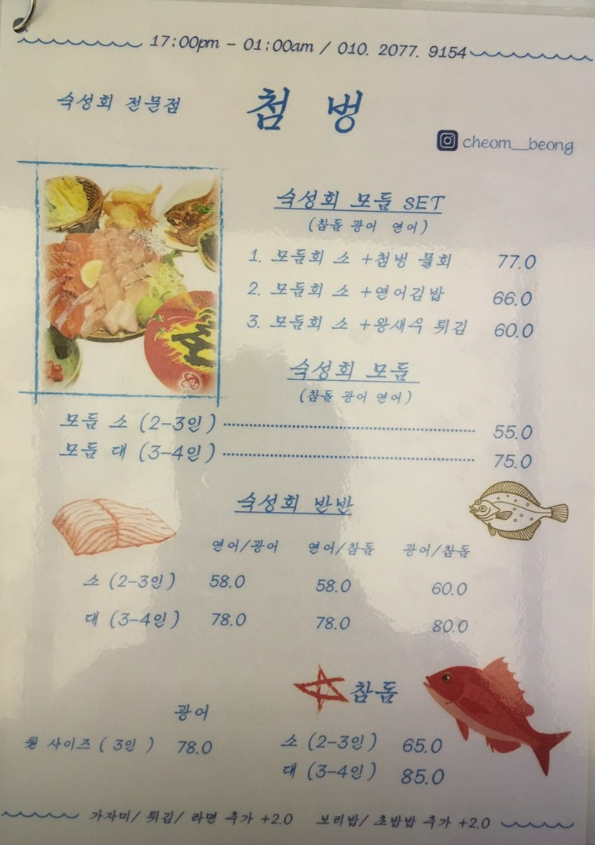 17:00pm - 01:00am / 010. 2077. 9154
숙성회 전문점
첨 벙
cheom__beong
숙성회 모듬 SET
(참돔 광어 연어)
1. 모듬회 소 +첨벙 물회 77.0
2. 모듬회 소 +연어김밥 66.0
3. 모듬회 소 +왕새우 튀김 60.0
숙성회 모듬
(참돔 광어 연어)
모듬 소 (2-3인) 55.0
모듬 대 (3-4인) 75.0
숙성회 반반
연어/광어 연어/참돔 광어/참돔
소 (2-3인) 58.0 58.0 60.0
대 (3-4인) 78.0 78.0 80.0
참돔
광어
원 사이즈 ( 3인 ) 78.0
소 (2-3인) 65.0
대 (3-4인) 85.0
가자미/ 튀김/ 라면 추가 +2.0 보리밥/ 초밥밥 추가 +2.0